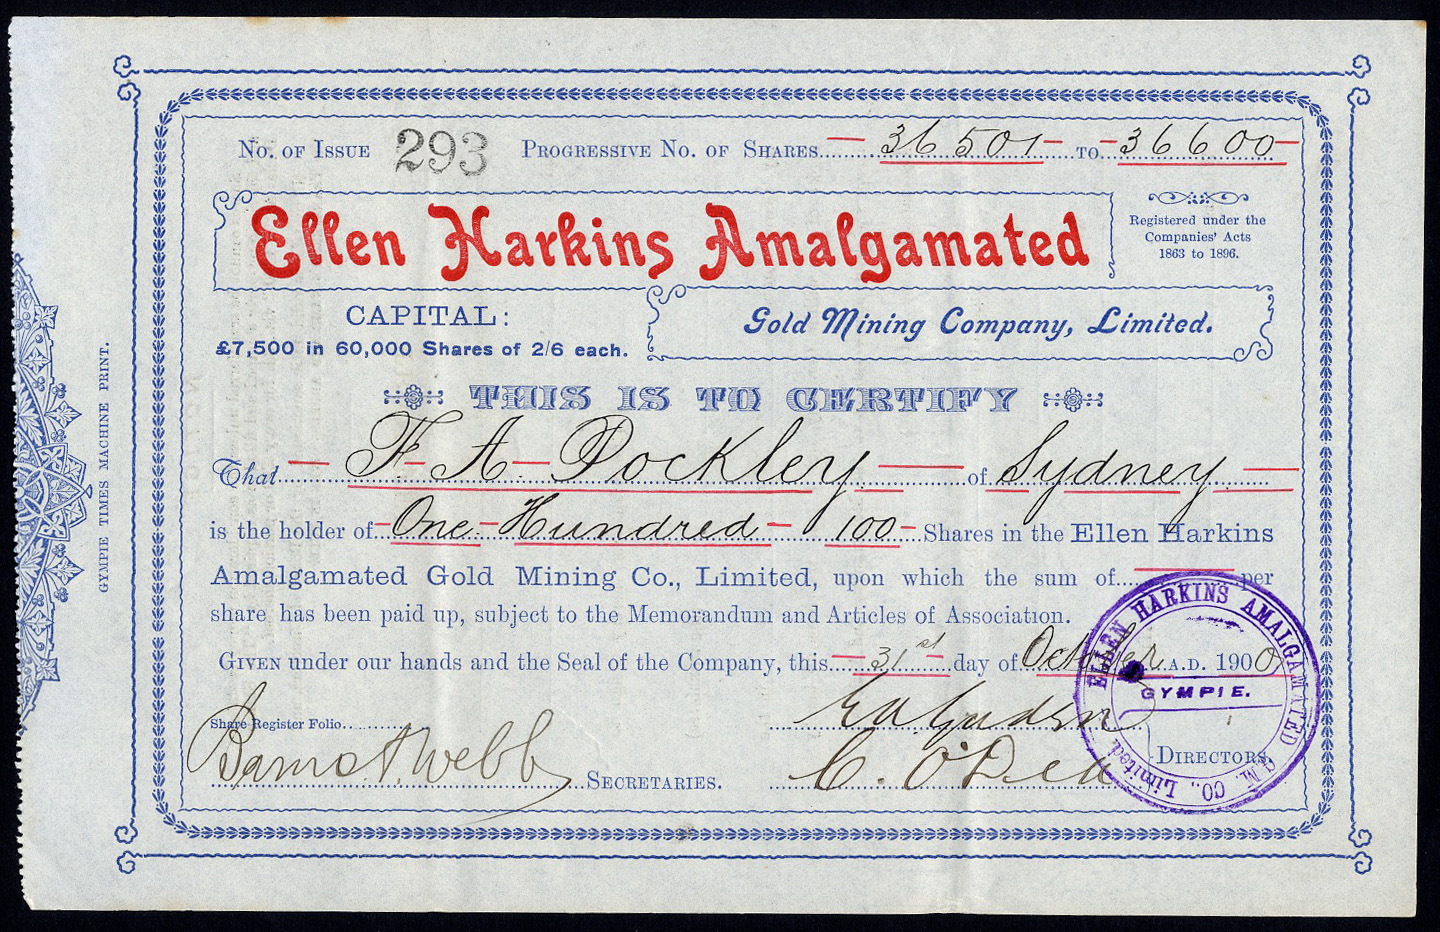 No. of Issue 293 Progressive No. of Shares 36501 to 36600
Ellen Harkins Amalgamated
Registered under the
Companies' Acts
1863 to 1896.
Gold Mining Company, Limited.
CAPITAL:
£7,500 in 60,000 Shares of 2/6 each.
THIS IS TO CERTIFY
That F. A. Pockley of Sydney
is the holder of One Hundred 100 Shares in the Ellen Harkins
Amalgamated Gold Mining Co., Limited, upon which the sum of per
share has been paid up, subject to the Memorandum and Articles of Association.
Given under our hands and the Seal of the Company, this 31st day of October A.D. 1900
Share Register Folio
Webb Secretaries.
C. O'Dea Directors
ELLEN HARKINS AMALGAMATED G. M. CO., Limited.
GYMPIE.
GYMPIE TIMES MACHINE PRINT.